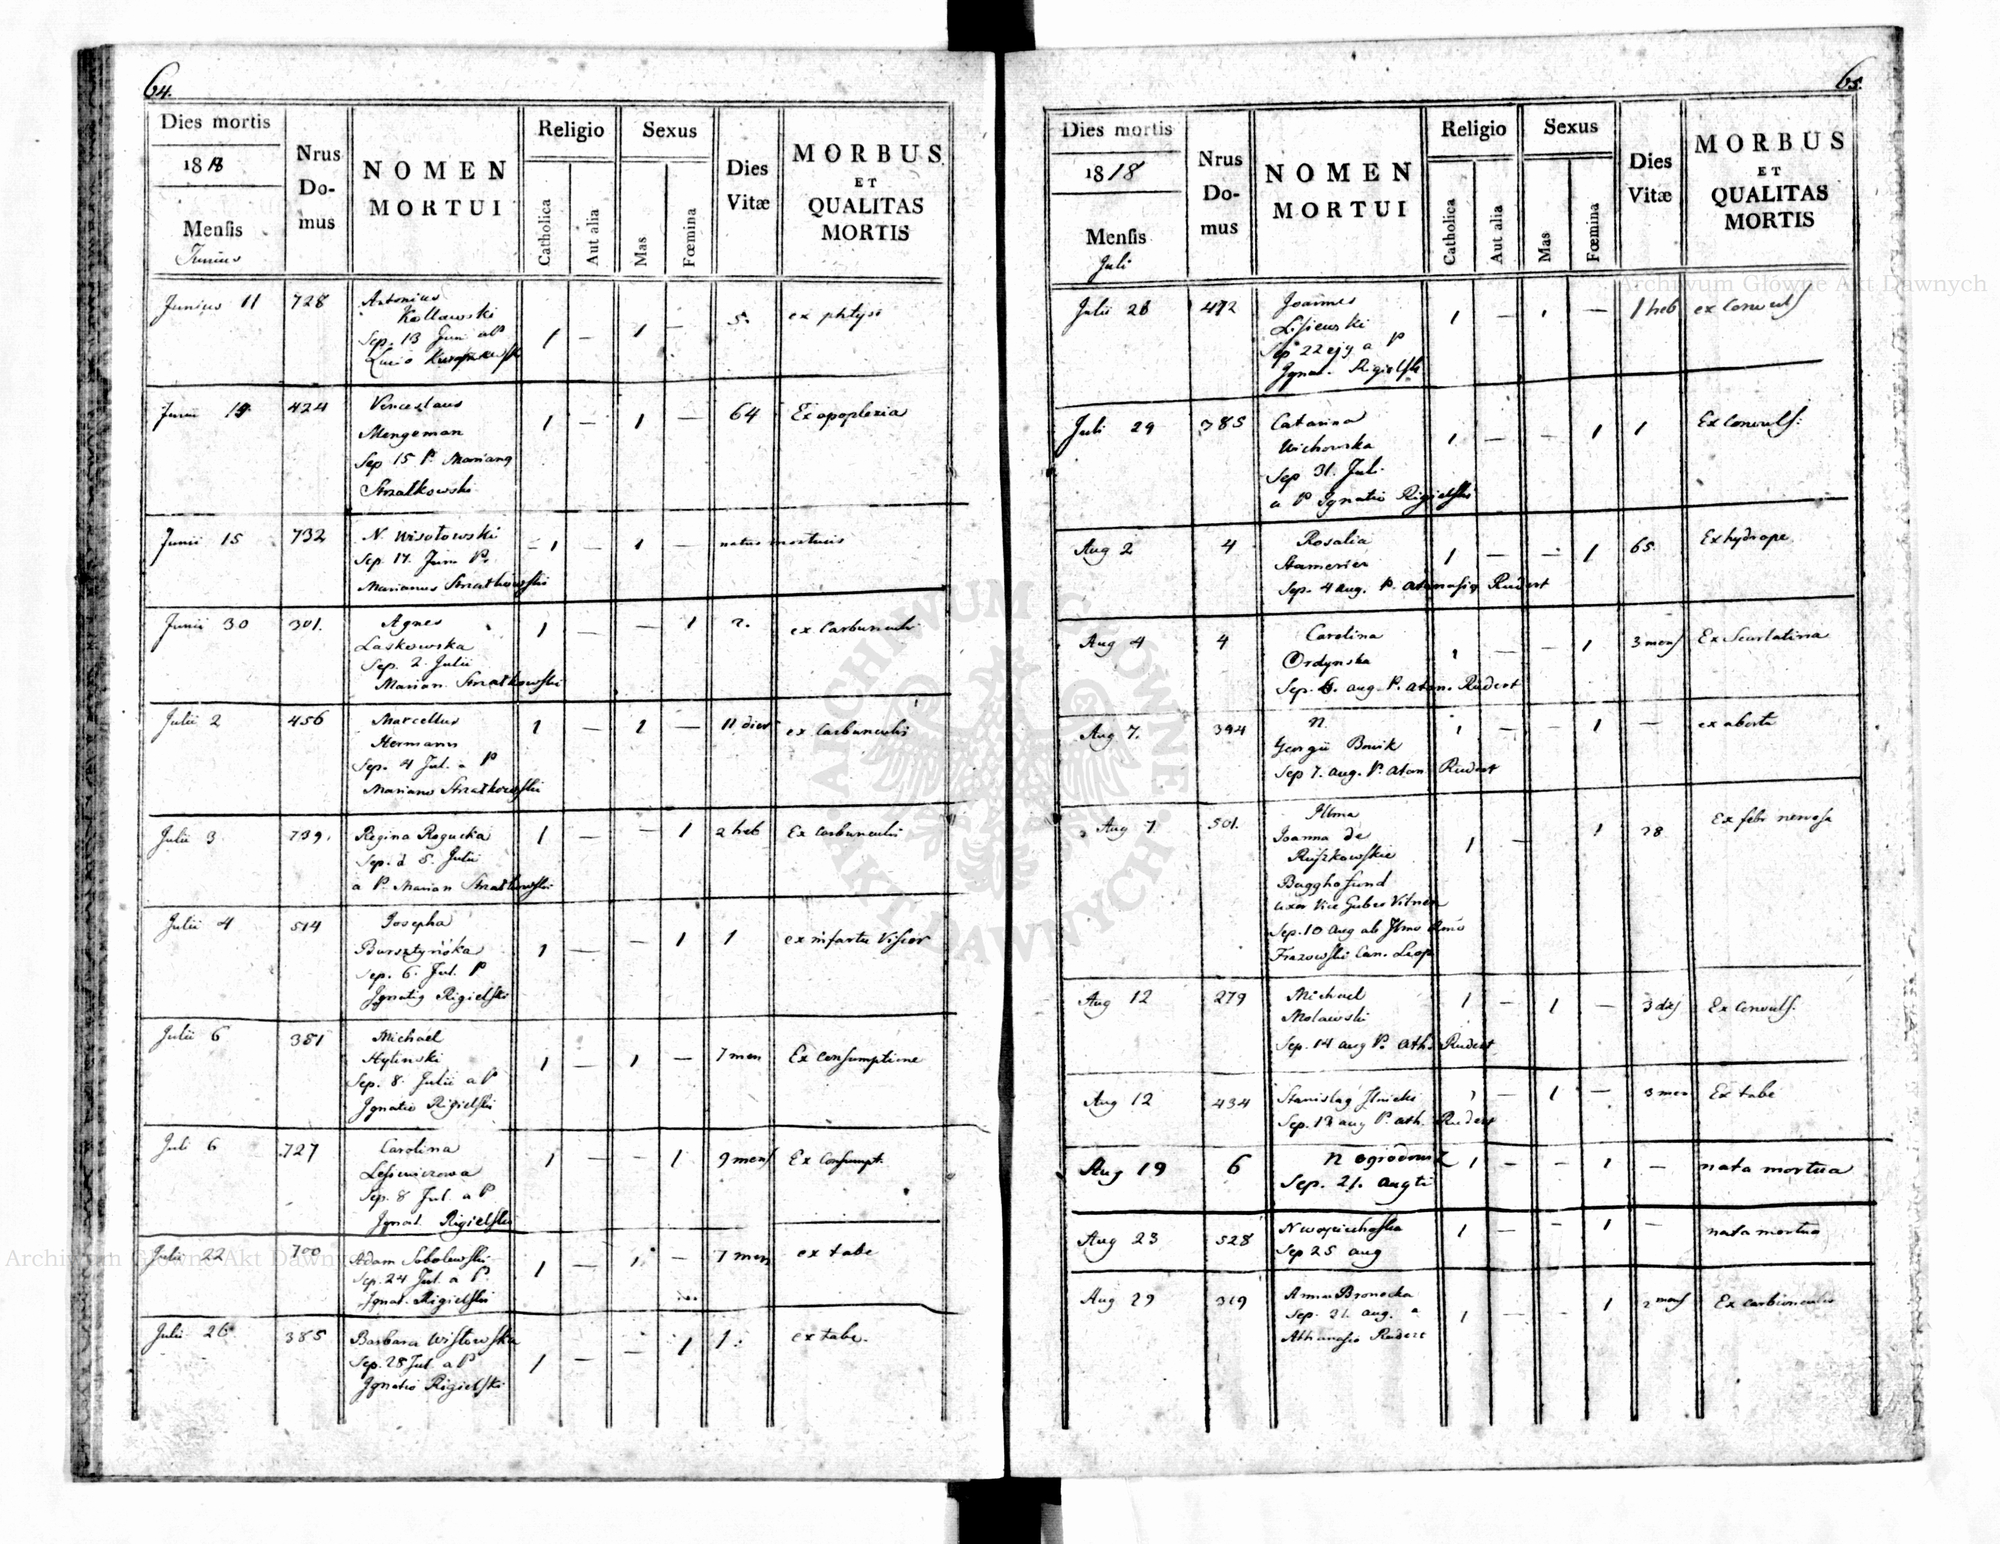 64.
Dies mortis
1818
Mensis
Junius
Nrus Domus
NOMEN MORTUI
Religio
Catholica
Aut alia
Sexus
Mas
Fœmina
Dies Vitæ
MORBUS ET QUALITAS MORTIS
Junius 11 728 Antonius 1 — 1 — 5. ex phtysi
Sep. 13 Juni a P
Junii 14 424 Venceslaus 1 — 1 — 64 Ex apoplexia
Mengeman
Sep 15 P. Mariang
Strzalkowski
Junii 15 732 N. Wisotowski 1 — 1 — natus mortuus
Sep. 17. Juni P.
Marianus Strzatkowski
Junii 30 301. Agnes 1 — — 1 2. ex Carbunculi
Laskowska
Sep. 2. Julii
Marian. Strzatkowski
Julii 2 456 Marcellus 1 — 1 — 11 dier ex Carbunculis
Hermann
Sep. 4 Jul. a P
Mariano Strzatkowski
Julii 3 739. Regina Rogucka 1 — — 1 2 heb Ex Carbunculis
Sep. d 5. Julii
a P. Marian Strzatkowski
Julii 4 514 Josepha 1 — — 1 1 ex infartu Viscer
Bursztyńska
Sep. 6. Jul. P
Ignatig Rigielski
Julii 6 381 Michael 1 — 1 — 7 men Ex Consumptione
Hylinski
Sep. 8. Julii a P
Ignatio Rigielski
Juli 6 727 Carolina 1 — — 1 9 mens Ex Consumpt.
Lesiewiczowa
Sep. 8 Jul. a P
Ignat. Rigielski
Julii 22 700 Adam Sobolewski 1 — 1 — 7 men ex tabe
Sep. 24 Jul. a P.
Ignat. Rigielski
Julii 26 385 Barbara Wislowska 1 — — 1 1. ex tabe.
Sep. 28 Jul. a P
Ignatio Rigielski
65.
Dies mortis
1818
Mensis
Juli
Nrus Domus
NOMEN MORTUI
Religio
Catholica
Aut alia
Sexus
Mas
Fœmina
Dies Vitæ
MORBUS ET QUALITAS MORTIS
Julii 28 472 Joannes 1 — 1 — 1 heb ex Convuls
Lisiewski
Sep 22 ejg a P
Ignat. Rigielski
Juli 29 385 Catarina 1 — — 1 1 Ex Convuls.
Wichowska
Sep 31. Juli.
a P Ignatio Rigielski
Aug 2 4 Rosalia 1 — — 1 65. Ex hydrope
Sep. 4 aug. P. Atanasig Rudert
Aug 4 4 Carolina 1 — — 1 3 mens Ex Scarlatina
Ordynska
Sep. 6. aug P. Atan. Rudert
Aug 7. 394 N. 1 — — 1 — ex abortu
Georgii Bowik
Sep 7. aug. P. Atan. Rudert
Aug 7 501. Illma 1 — 1 28 Ex febr nervosa
Joanna de
Ruszkowskie
Bagghofund
uxor Vice Gubers
Sep. 10 aug ab Illmo
Aug 12 279 Michael 1 — 1 — 3 dis Ex Convuls.
Molawski
Sep. 14 aug P. Ath. Rudert
Aug 12 434 Stanislag Ilnicki 1 — 1 — 3 men Ex tabe
Sep. 13 aug P. Ath. Rudert
Aug 19 6 N Ogrodowicz 1 — — 1 — nata mortua
Sep. 21. augti
Aug 23 528 N Woyciechoska 1 — — 1 — nata mortua
Sep 25 aug
Aug 29 319 Anna Bronocka 1 — — 1 2 mens Ex carbunculis
Sep. 31. aug. a
Athanasio Rudert
Archiwum Główne Akt Dawnych
ARCHIWUM GŁÓWNE
AKT DAWNYCH
Archiwum Główne Akt Dawnych